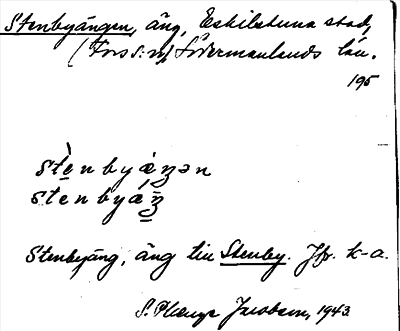 Stenbyängen, äng, Eskilstuna stad,
(Fors s:n) Södermanlands län.
195
stènbyæŋən
stenbyǽŋ
Stenbyäng, äng till Stenby. Jfr. k-a.
S. Jacobson, 1943.